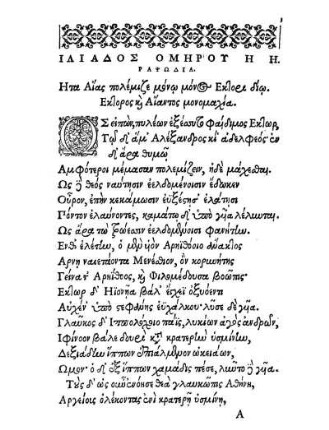 ΙΛΙΑΔΟΣ ΟΜΗΡΟΥ Η Η.
ΡΑΨΩΔΙΑ.
Ητα Αἴας πολέμιζε μόνῳ μόνος Εκτορι δίῳ.
Εκτορος κ̀ Αἴαντος μονομαχία.
ΩΣ εἰπὼν, πυλέων ἐξέσσυτο φαίδιμος Εκτωρ,
Τῷ δ' ἅμ' Αλέξανδρος κί' ἀδελφεός· ἐν
δ' ἄρα θυμῷ
Αμφότεροι μέμασαν πολεμίζειν, ἠδὲ μάχεσθαι.
Ως δὲ θεὸς ναύτῃσιν ἐελδομένοισιν ἔδωκεν
Οὖρον, ἐπήν κεκάμωσιν ἐϋξέστῃς ἐλάτῃσι
Πόντον ἐλαύνοντες, καμάτῳ δ' ὑπὸ γυῖα λέλυνται,
Ως ἄρα τὼ Τρώεσσιν ἐελδομένοισι φανήτην.
Ενθ' ἑλέτην, ὁ μὲν υἱὸν Αρηϊθόοιο ἄνακτος
Αρνῃ ναιετάοντα Μενέσθιον, ὃν κορυνήτης
Γείνατ' Αρηΐθοος, κ̀ Φιλομέδουσα βοῶπις·
Εκτωρ δ' Ηϊονῆα βάλ' ἔγχεϊ ὀξυόεντι
Αυχέν' ὑπὸ στεφάνης εὐχάλκου· λῦσε δὲ γυῖα.
Γλαῦκος δ' Ιππολόχοιο πάϊς, λυκίων ἀγὸς ἀνδρῶν,
Ιφίνοον βάλε δουρὶ κατὰ κρατερὴν ὑσμίνην,
Δεξιάδην ἵππων ἐπιάλμενον ὠκειάων,
Ωμον· ὁ δ' ἐξ ἵππων χαμάδις πέσε, λῦντο δὲ γυῖα.
Τοὺς δ' ὡς οὖν ἐνόησε θεὰ γλαυκῶπις Αθήνη,
Αργείους ὀλέκοντας ἐνὶ κρατερῇ ὑσμίνῃ,
A